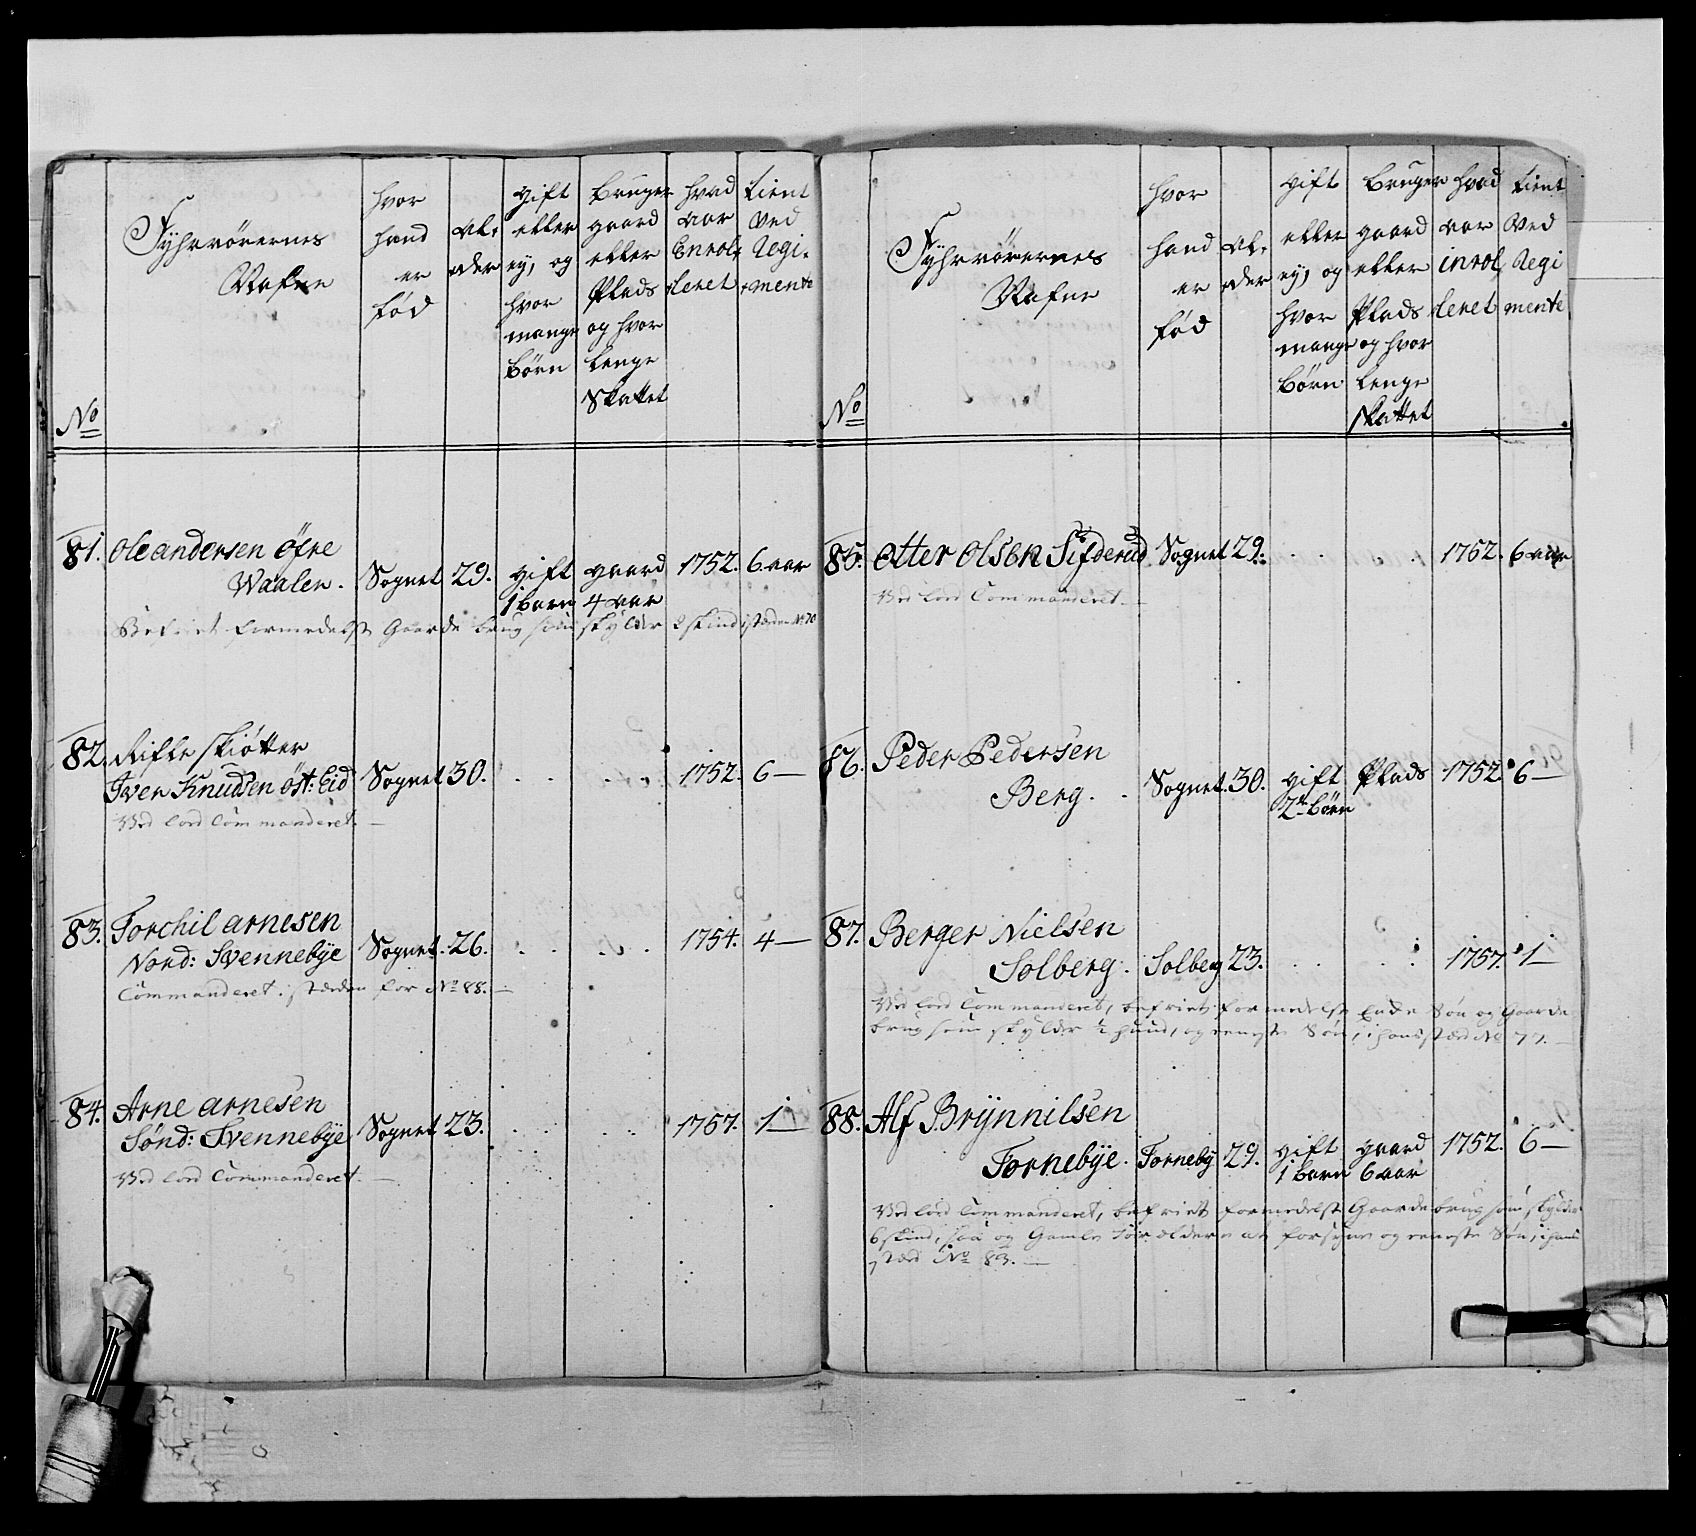 No
Fyhrrörernes
Nafne
hvor
hand
er
fød
Al-
der
gift
eller
ey, og
hvor
mange
börn
bruger
gaard
eller
Plads
og hvor
lenge
Skattet
hvad
aar
Enrol-
leret
tient
Ved
Regi-
mente
81. Ole andersen öfre
Waalen. Sognet 29. gift gaard 1752. 6 aar
1 barn 4 aar
Befriet formedelst Gaarde brug som skylder 2 skind isteden No 70
82. Rifle skiötter
Iver Knudsen öst: Eid Sognet 30. 1752. 6 —
Ved Cord Commanderet. —
83. Torchil arnesen
Nord: Svennebye Sognet. 26. 1754. 4 —
Commanderet. isteden for No 88. —
84. Arne arnesen
Sönd: Svennebye Sognet 23. 1757. 1 —
Ved Cord Commanderet. —
No
Fyhrrörernes
Nafne
hvor
hand
er
fød
Al-
der
gift
eller
ey, og
hvor
mange
börn
bruger
gaard
eller
Plads
og hvor
lenge
skattet
hvad
aar
inrol
leret
tient
Ved
Regi
mente
85. Otter Olsen Sifderud Sognet 29. 1752. 6 aar
Ved Cord Commanderet. —
86. Peder Pedersen
Berg. Sognet. 30. gift Plads 1752. 6 —
2 börn
87. Berger Nielsen
Solberg. Solberg 23. 1757. 1 —
Ved Cord Commanderet, befriet formedelst Søn og Gaarde
brug som skylder ½ huud, og eeneste Søn, i hans sted No 77. —
88. Alf Brÿnnilsen
Fornebÿe. Fornebÿ 29. gift gaard 1752. 6 —
1 barn 6 aar
Ved Cord Commanderet, befriet formedelst Gaarde brug som skylder
6 skind, saa og Gamle Forældere at forsyne og eeneste Søn, i hans
sted No 83. —